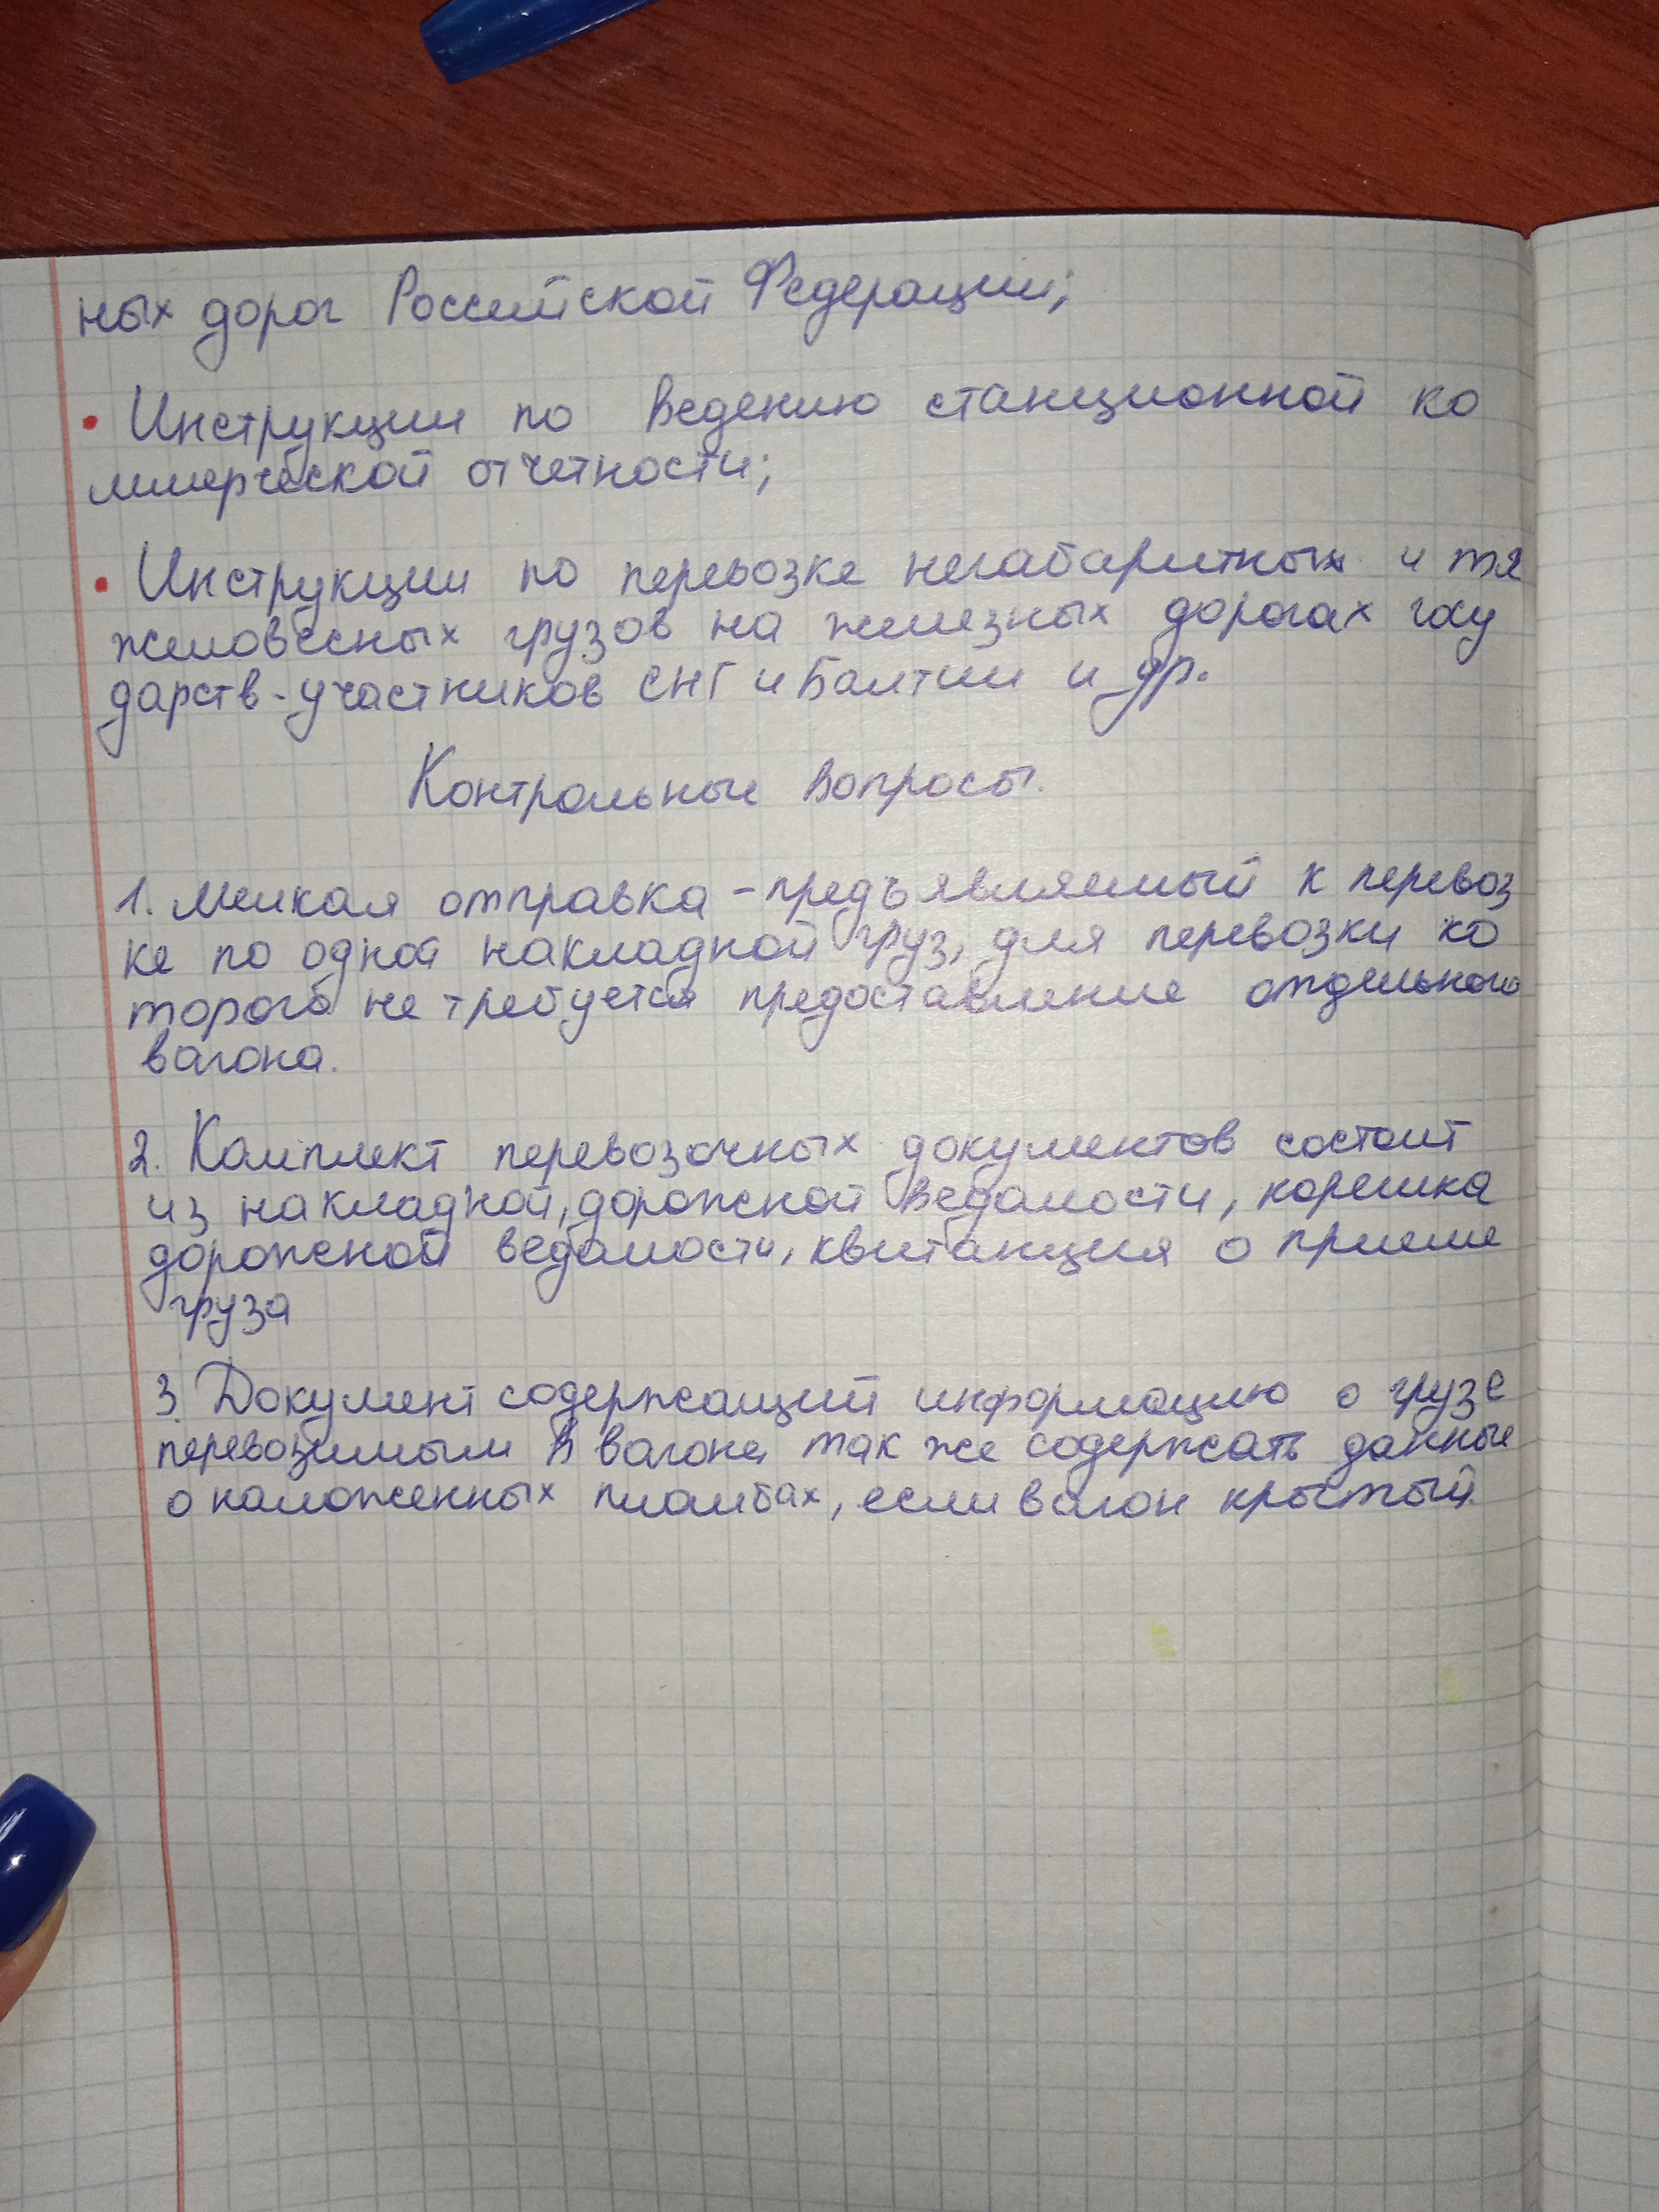 ных дорог Российской Федерации;
• Инструкции по ведению станционной ко
ммерческой отчетности;
• Инструкции по перевозке негабаритных и тя
желовесных грузов на железных дорогах госу
дарств-участников СНГ и Балтии и др.
Контрольные вопросы.
1. Мелкая отправка - предъявляемый к перевоз
ке по одной накладной груз, для перевозки ко
торого не требуется предоставление отдельного
вагона.
2. Комплект перевозочных документов состоит
из накладной, дорожной ведомости, корешка
дорожной ведомости, квитанция о приеме
груза
3. Документ содержащий информацию о грузе
перевозимым в вагоне, так же содержать данные
о наложенных пломбах, если вагон крытый.